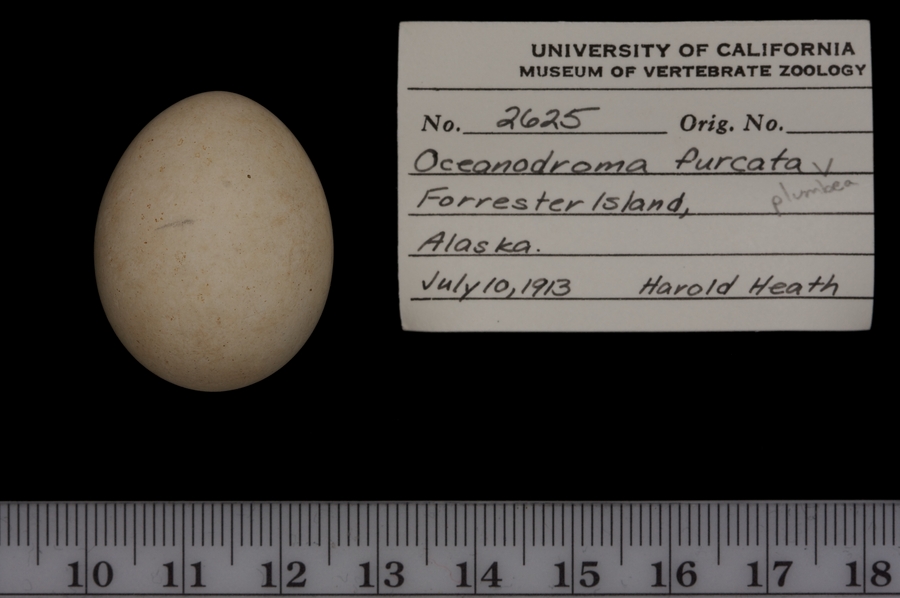 UNIVERSITY OF CALIFORNIA
MUSEUM OF VERTEBRATE ZOOLOGY
No. 2625 Orig. No.
Oceanodroma furcata
plumbea
Forrester Island,
Alaska.
July 10, 1913 Harold Heath
10 11 12 13 14 15 16 17 18